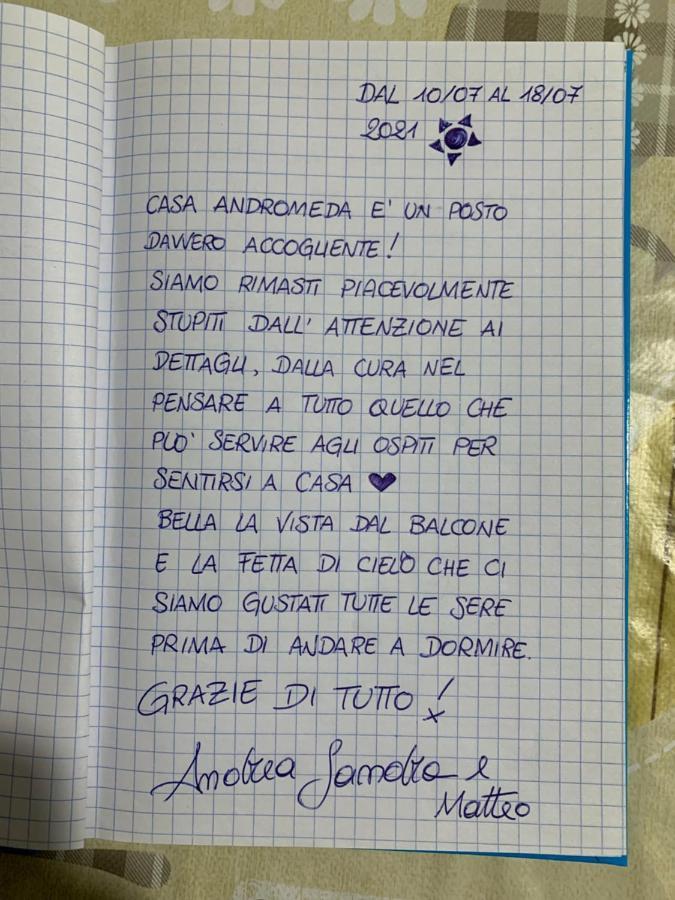 DAL 10/07 AL 18/07
2021
CASA ANDROMEDA E' UN POSTO
DAVVERO ACCOGLIENTE!
SIAMO RIMASTI PIACEVOLMENTE
STUPITI DALL' ATTENZIONE AI
DETTAGLI, DALLA CURA NEL
PENSARE A TUTTO QUELLO CHE
PUO' SERVIRE AGLI OSPITI PER
SENTIRSI A CASA ♥
BELLA LA VISTA DAL BALCONE
E LA FETTA DI CIELO CHE CI
SIAMO GUSTATI TUTTE LE SERE
PRIMA DI ANDARE A DORMIRE.
GRAZIE DI TUTTO!
Andrea Sandra e
Matteo